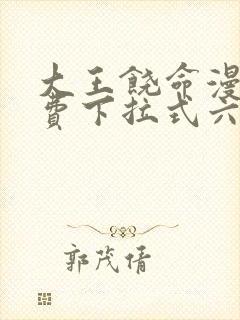 大王饶命漫
费下拉式六
郭茂倩